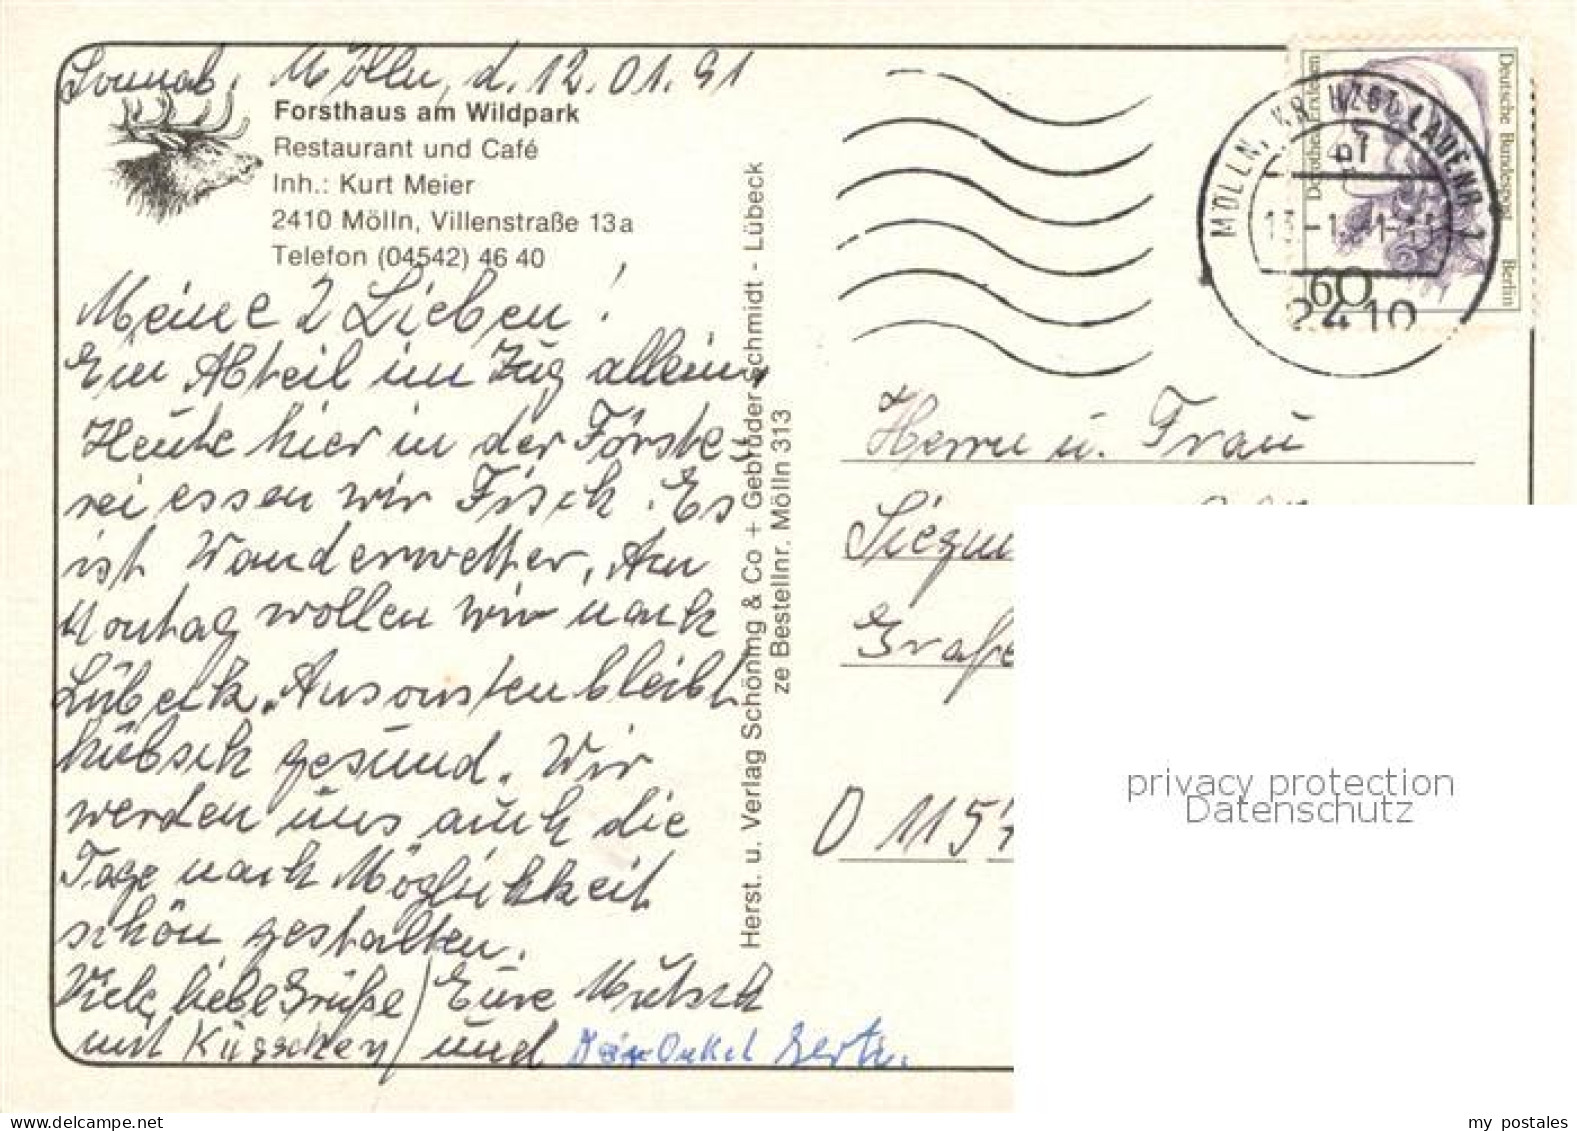 Sonnab, Mölln, d. 12.01.91
Forsthaus am Wildpark
Restaurant und Café
Inh.: Kurt Meier
2410 Mölln, Villenstraße 13a
Telefon (04542) 46 40
Meine 2 Lieben!
Ein Abteil im Zug allein,
Heute hier in der Förste-
rei essen wir Fisch. Es
ist Wanderwetter. Am
Montag wollen wir nach
Lübeck. Ansonsten bleibt
hübsch gesund. Wir
werden uns auch die
Tage nach Möglichkeit
schön gestalten.
Viele liebe Grüße / Eure Mutsch
mit Küsschen / und Dein Onkel
Herst. u. Verlag Schöning & Co + Gebrüder Schmidt - Lübeck
ze Bestellnr. Mölln 313
Deutsche Bundespost Berlin
Dorothea Erxleben
60
MÖLLN, KR HZGT LAUENB 1
2410
Herrn u. Frau
D 115
privacy protection
Datenschutz
my postales